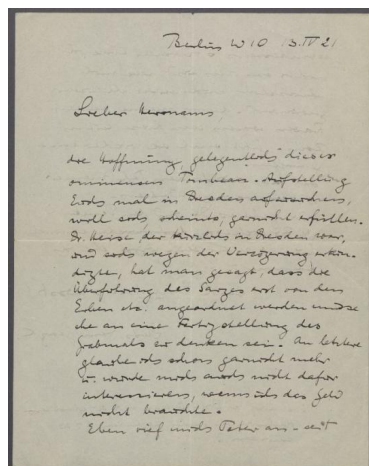 Berlin W 10 3.IV 21
Lieber Hermanns
die Hoffnung, gelegentlich dieser
ominensen Aufstellung
Euch mal in Dresden aufwarten,
will sich scheints, garnicht erfüllen.
Dr. Heise, der kürzlich in Dresden war,
und sich wegen der Verzögerung erkun-
digte, hat man gesagt, dass die
Überführung des Sarges erst von den
Erben etc. angeordnet werden müsse
ehe an eine Fertigstellung des
Grabmals zu denken sei. An letztere
glaube ich schon garnicht mehr
u. würde mich auch nicht dafür
interessieren, wenn ich das Geld
nicht brauchte.
Eben rief mich Peter an - seit